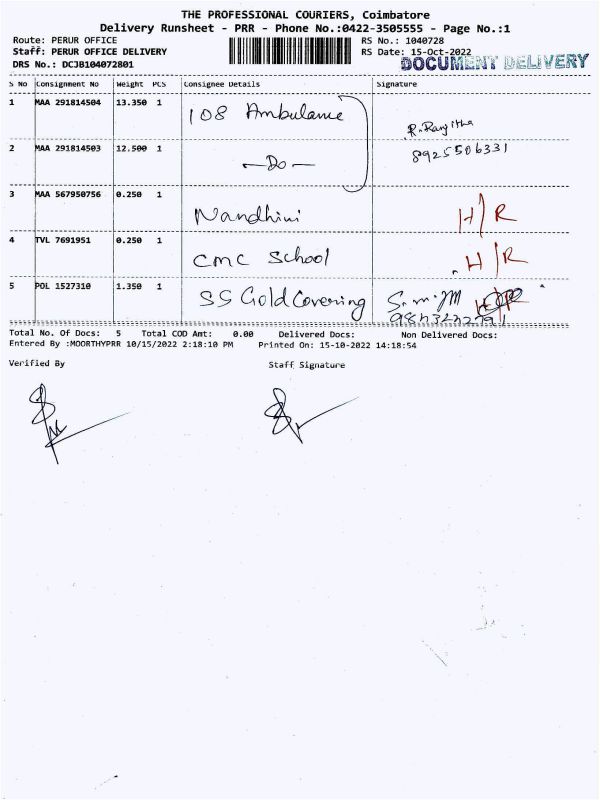 THE PROFESSIONAL COURIERS, Coimbatore
Delivery Runsheet - PRR - Phone No.:0422-3505555 - Page No.:1
Route: PERUR OFFICE RS No.: 1040728
Staff: PERUR OFFICE DELIVERY RS Date: 15-Oct-2022
DRS No.: DCJB104072801 DOCUMENT DELIVERY
S No Consignment No Weight PCS Consignee Details Signature
1 MAA 291814504 13.350 1 108 Ambulance R. Ranjitha
2 MAA 291814503 12.500 1 -Do- 8925506331
3 MAA 567950756 0.250 1 Nandhini H/R
4 TVL 7691951 0.250 1 CMC School H/R
5 POL 1527310 1.350 1 SS Gold Covering H/R
Total No. Of Docs: 5 Total COD Amt: 0.00 Delivered Docs: Non Delivered Docs:
Entered By :MOORTHYPRR 10/15/2022 2:18:10 PM Printed On: 15-10-2022 14:18:54
Verified By Staff Signature